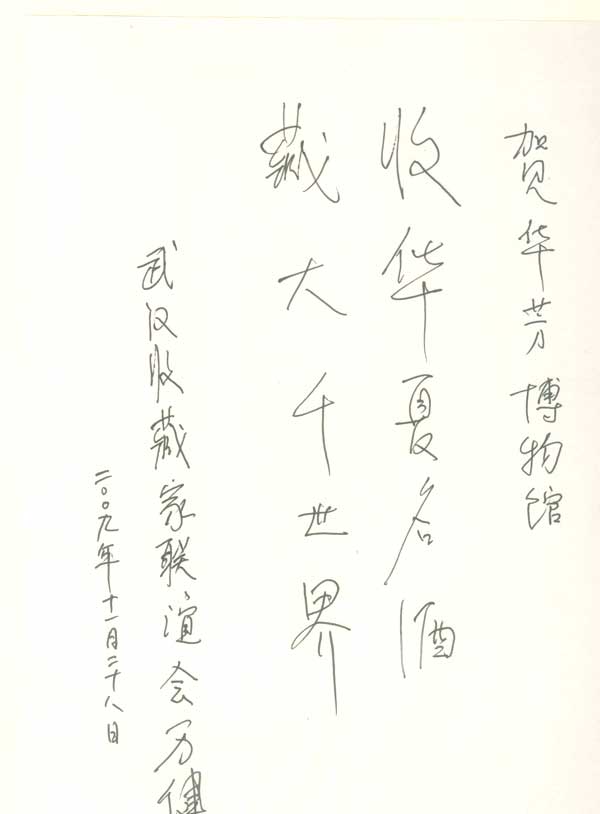 贺华芳博物馆
收华夏名酒
藏大千世界
武汉收藏家联谊会万健
二００九年十一月二十八日